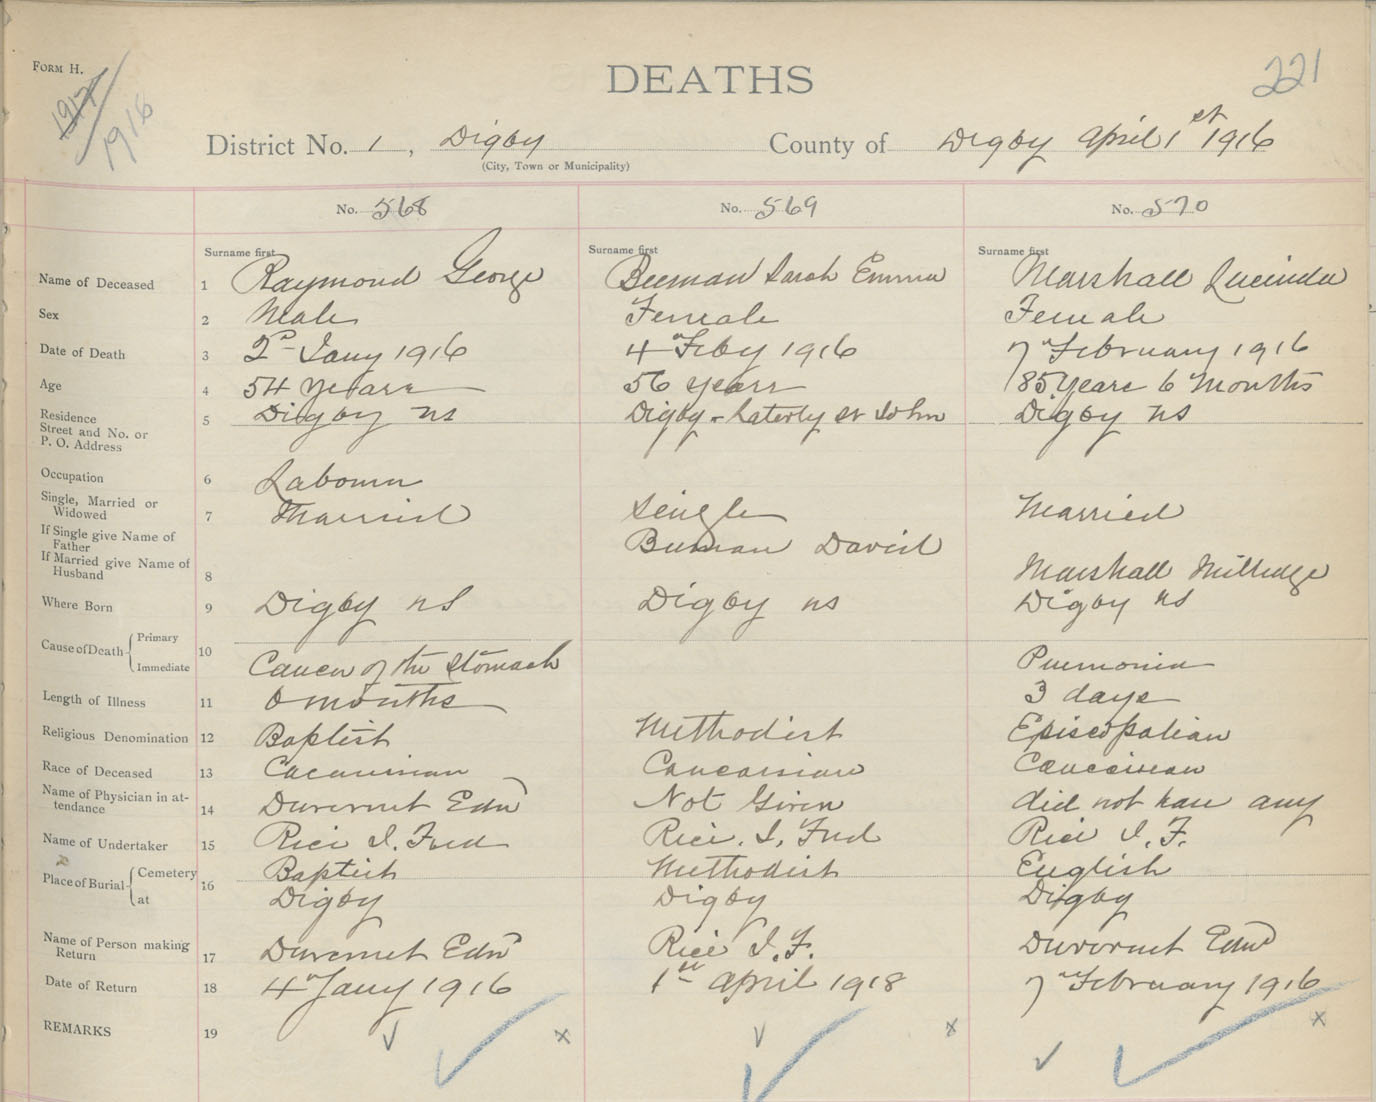 FORM H.
1917
1916
DEATHS
221
District No. 1, Digby County of Digby April 1st 1916
(City, Town or Municipality)
No. 568 No. 569 No. 570
Surname first Surname first Surname first
Name of Deceased 1 Raymond George Beeman Sarah Emma Marshall Lucinda
Sex 2 Male Female Female
Date of Death 3 2d Jany 1916 4th Feby 1916 7th February 1916
Age 4 54 years 56 years 85 years 6 months
Residence Street and No. or P. O. Address 5 Digby ns Digby - Laterly St John Digby ns
Occupation 6 Labourer
Single, Married or Widowed 7 Married Single Married
If Single give Name of Father Beeman David
If Married give Name of Husband 8 Marshall Milledge
Where Born 9 Digby nS Digby ns Digby ns
Cause of Death { Primary
Immediate 10 Cancer of the Stomach Pnemonia
Length of Illness 11 months 3 days
Religious Denomination 12 Baptist Methodist Episcopalian
Race of Deceased 13 Caucasian
Name of Physician in attendance 14 Duvernet Edw Not Given did not have any
Name of Undertaker 15 Rice I. Fred Rice. I. Fred Rice I. F.
Place of Burial { Cemetery 16 Baptist Methodist English
at Digby Digby Digby
Name of Person making Return 17 Duvernet Edw Rice I. F. Duvernet Edwd
Date of Return 18 4th Jany 1916 1st April 1918 7th February 1916
REMARKS 19